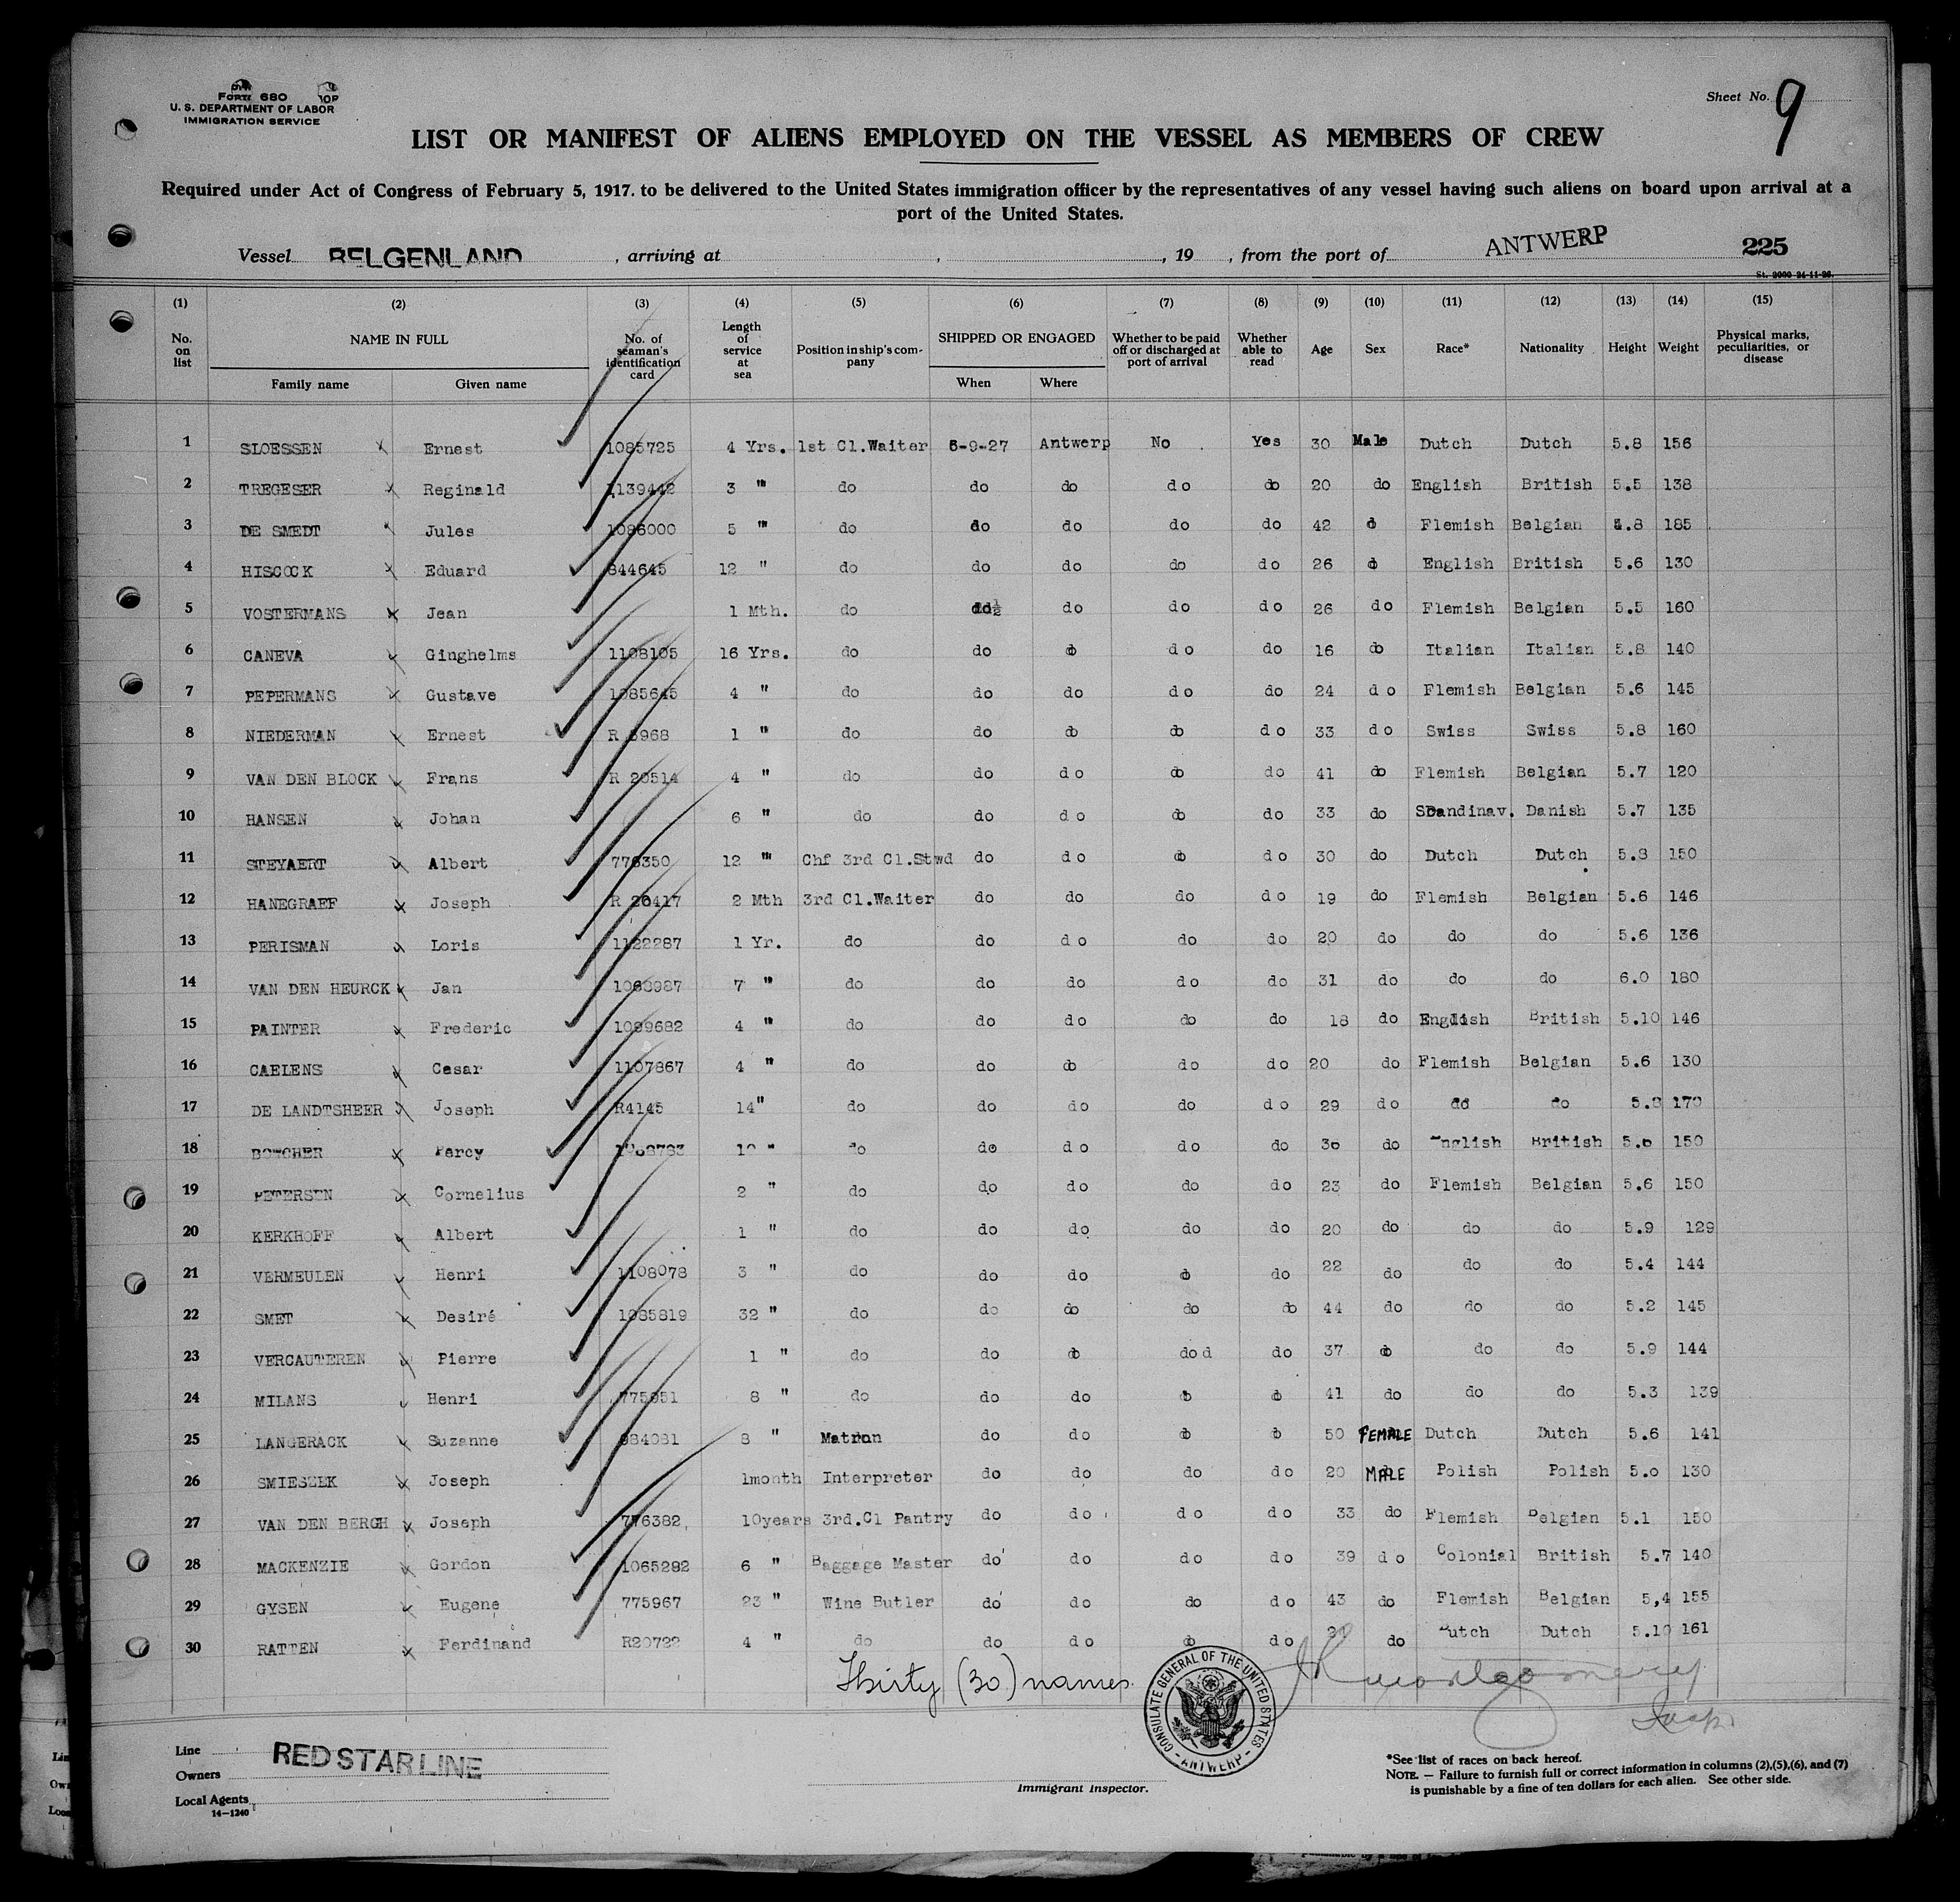 Form 680
U. S. DEPARTMENT OF LABOR
IMMIGRATION SERVICE
Sheet No. 9
LIST OR MANIFEST OF ALIENS EMPLOYED ON THE VESSEL AS MEMBERS OF CREW
Required under Act of Congress of February 5, 1917. to be delivered to the United States immigration officer by the representatives of any vessel having such aliens on board upon arrival at a
port of the United States.
Vessel BELGENLAND , arriving at , , 19 , from the port of ANTWERP 225
St. 2000 24-11-26.
(1) (2) (3) (4) (5) (6) (7) (8) (9) (10) (11) (12) (13) (14) (15)
No. on list NAME IN FULL No. of seaman's identification card Length of service at sea Position in ship's company SHIPPED OR ENGAGED Whether to be paid off or discharged at port of arrival Whether able to read Age Sex Race* Nationality Height Weight Physical marks, peculiarities, or disease
Family name Given name When Where
1 SLOESSEN Ernest 1085725 4 Yrs. 1st Cl.Waiter 6-9-27 Antwerp No Yes 30 Male Dutch Dutch 5.8 156
2 TREGESER Reginald 1139442 3 " do do do do do 20 do English British 5.5 138
3 DE SMEDT Jules 1086000 5 " do do do do do 42 do Flemish Belgian 4.8 185
4 HISCOCK Eduard 844645 12 " do do do do do 26 do English British 5.6 130
5 VOSTERMANS Jean 1 Mth. do do do do do 26 do Flemish Belgian 5.5 160
6 CANEVA Ginghelms 1108105 16 Yrs. do do do do do 16 do Italian Italian 5.8 140
7 PEPERMANS Gustave 1085645 4 " do do do do do 24 do Flemish Belgian 5.6 145
8 NIEDERMAN Ernest R 6968 1 " do do do do do 33 do Swiss Swiss 5.8 160
9 VAN DEN BLOCK Frans R 20514 4 " do do do do do 41 do Flemish Belgian 5.7 120
10 HANSEN Johan 6 " do do do do do 33 do Scandinav. Danish 5.7 135
11 STEYAERT Albert 776350 12 " Chf 3rd Cl.Stwd do do do do 30 do Dutch Dutch 5.8 150
12 HANEGRAEF Joseph R 26417 2 Mth 3rd Cl.Waiter do do do do 19 do Flemish Belgian 5.6 146
13 PERISMAN Loris 1122287 1 Yr. do do do do do 20 do do do 5.6 136
14 VAN DEN HEURCK Jan 1063987 7 " do do do do do 31 do do do 6.0 180
15 PAINTER Frederic 1099682 4 " do do do do do 18 do English British 5.10 146
16 CAELENS Cesar 1107867 4 " do do do do do 20 do Flemish Belgian 5.6 130
17 DE LANDTSHEER Joseph R4145 14" do do do do do 29 do do do 5.8 170
18 BOWCHER Percy 1068783 10 " do do do do do 36 do English British 5.6 150
19 PETERSEN Cornelius 2 " do do do do do 23 do Flemish Belgian 5.6 150
20 KERKHOFF Albert 1 " do do do do do 20 do do do 5.9 129
21 VERMEULEN Henri 1108078 3 " do do do do do 22 do do do 5.4 144
22 SMET Desiré 1085819 32 " do do do do do 44 do do do 5.2 145
23 VERCAUTEREN Pierre 1 " do do do do d do 37 do do do 5.9 144
24 MILANS Henri 775951 8 " do do do do do 41 do do do 5.3 139
25 LANGERACK Suzanne 984081 8 " Matron do do do do 50 FEMALE Dutch Dutch 5.6 141
26 SMIESZEK Joseph 1month Interpreter do do do do 20 MALE Polish Polish 5.0 130
27 VAN DEN BERGH Joseph 776382, 10years 3rd.Cl Pantry do do do do 33 do Flemish Belgian 5.1 150
28 MACKENZIE Gordon 1065282 6 " Baggage Master do do do do 39 do Colonial British 5.7 140
29 GYSEN Eugene 775967 23 " Wine Butler do do do do 43 do Flemish Belgian 5,4 155
30 RATTEN Ferdinand R20722 4 " do do do do do do Dutch Dutch 5.10 161
Thirty (30) names
CONSULATE GENERAL OF THE UNITED STATES - ANTWERP -
Line RED STAR LINE
Owners
Local Agents
14-1240
Immigrant Inspector.
*See list of races on back hereof.
NOTE. — Failure to furnish full or correct information in columns (2),(5),(6), and (7)
is punishable by a fine of ten dollars for each alien. See other side.